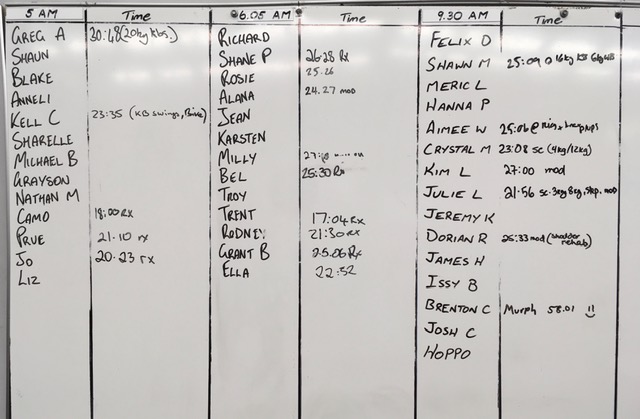 5 AM Time 6.05 AM Time 9.30 AM Time
GREG A 30:48 (20kg Kbs.) RICHARD FELIX D
SHAUN SHANE P 26:28 Rx SHAWN M 25:09 @ 16kg KB
BLAKE ROSIE 25.26 MERIC L
ANNELI ALANA 24.27 mod HANNA P
KELL C 23:35 (KB swings, JEAN AIMEE W 25:06 @
SHARELLE KARSTEN CRYSTAL M 23:08 sc (4kg/12kg)
MICHAEL B MILLY KIM L 27:00 mod
GRAYSON BEL 25:30 Rx JULIE L 21:56 sc. 3kg 8kg, skp. mod
NATHAN M TROY JEREMY K
CAMO 18:00 RX TRENT 17:04 RX DORIAN R 25:33 mod (shoulder rehab)
PRUE 21.10 rx RODNEY 21:30 RX JAMES H
JO 20.23 rx GRANT B 25.06 Rx ISSY B
LIZ ELLA 22:32 BRENTON C Murph 58.01 !!
JOSH C
HOPPO